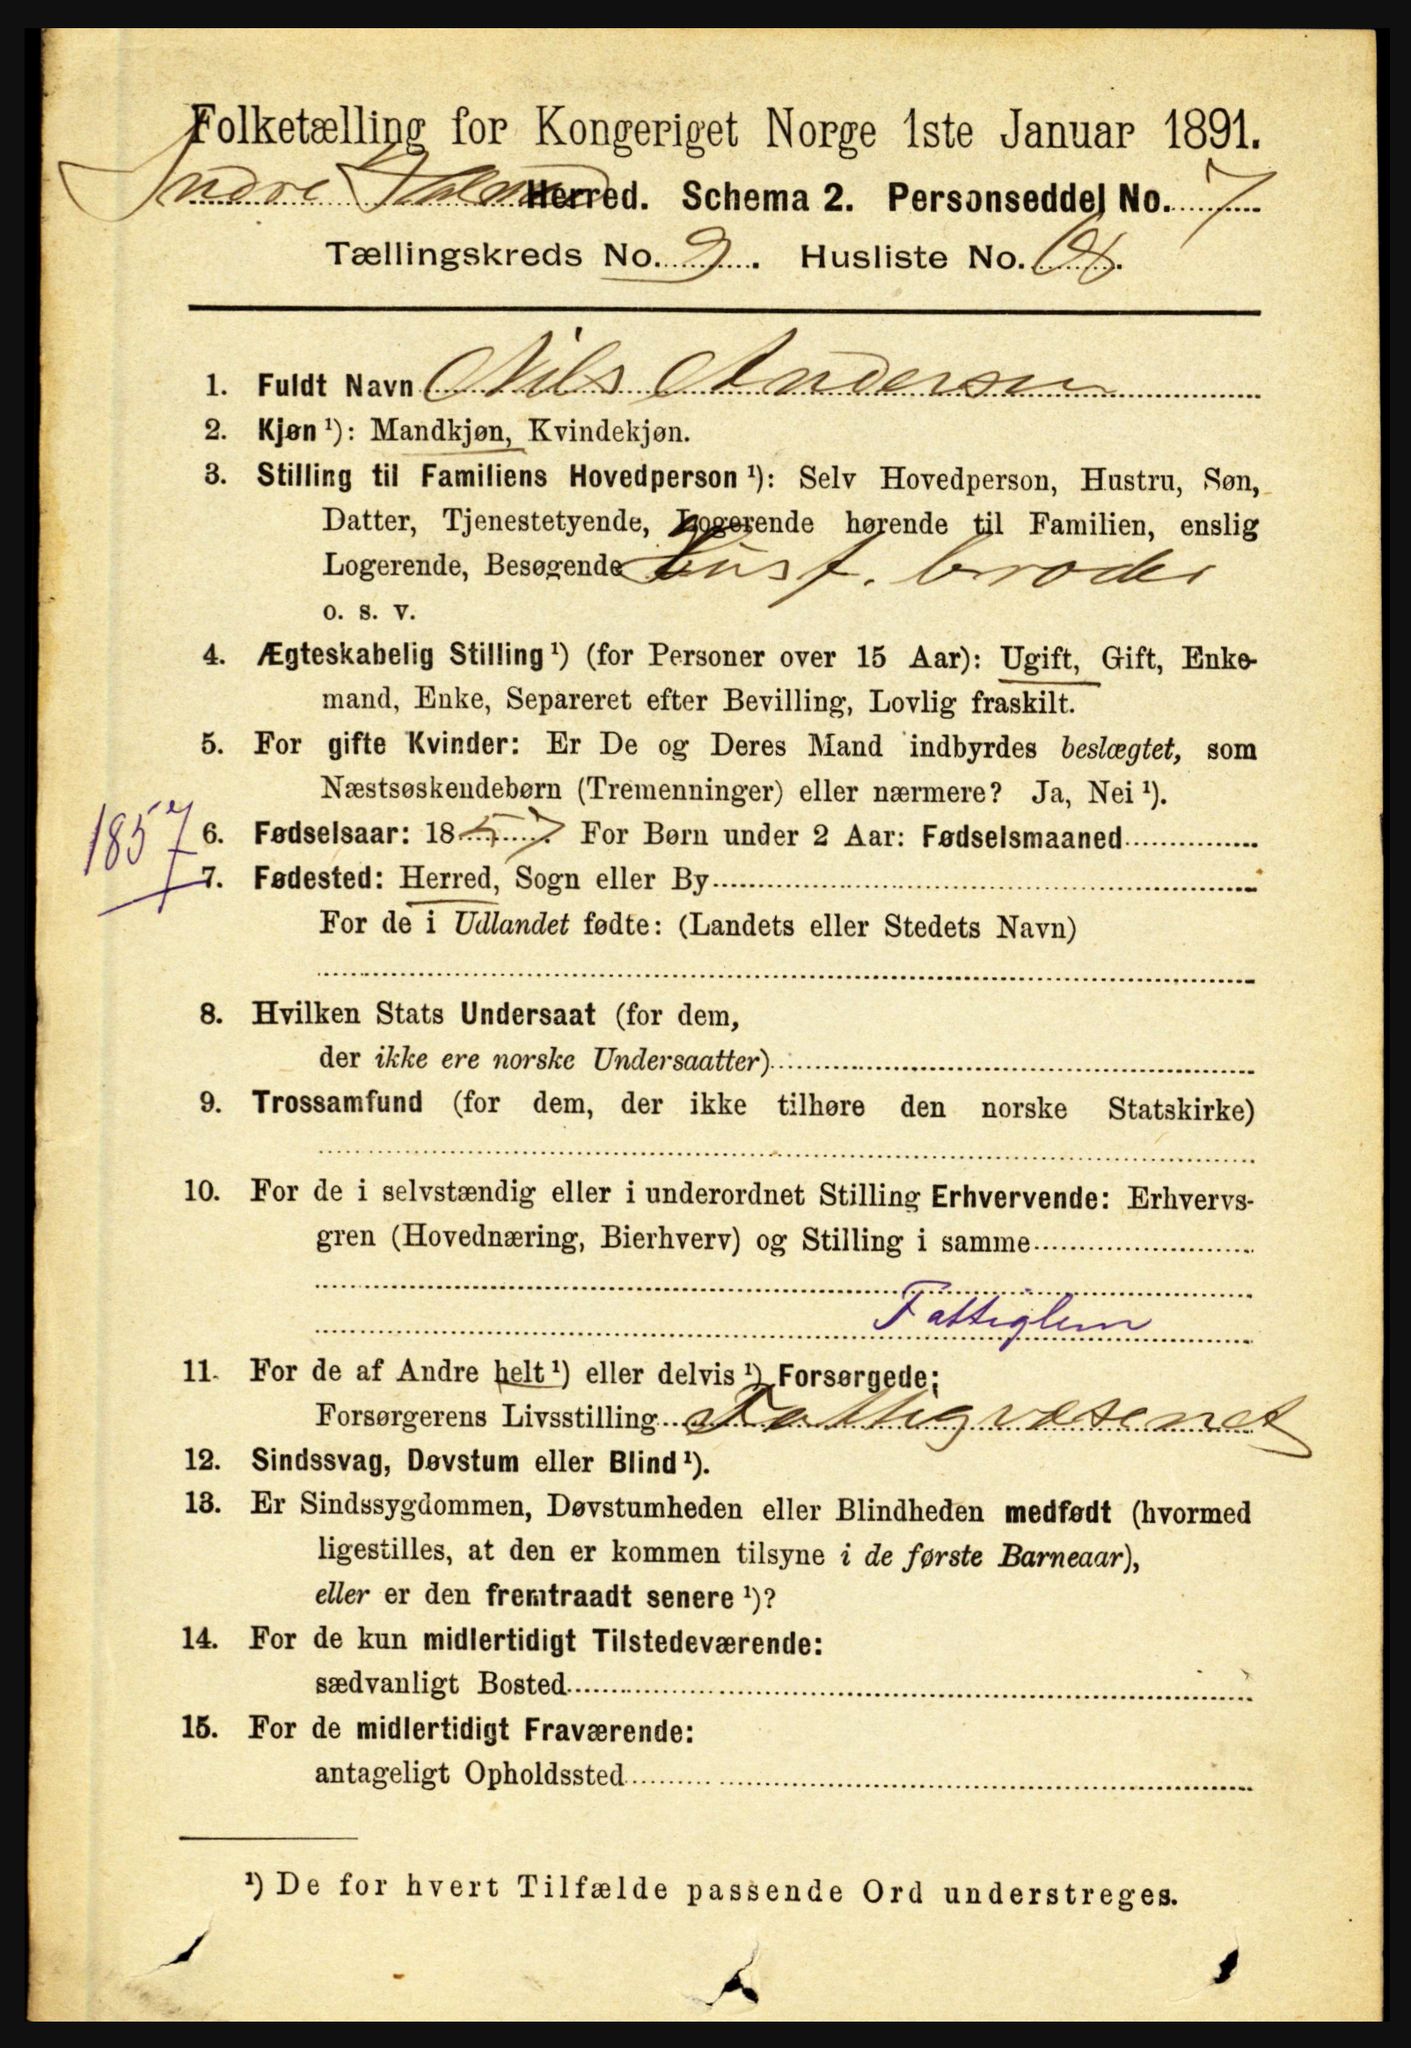 Folketælling for Kongeriget Norge 1ste Januar 1891.
Indre Herred. Schema 2. Personseddel No. 7
Tællingskreds No. 9. Husliste No.
1. Fuldt Navn Nils Andersen
2. Kjøn ¹): Mandkjøn, Kvindekjøn.
3. Stilling til Familiens Hovedperson ¹): Selv Hovedperson, Hustru, Søn,
Datter, Tjenestetyende, Logerende hørende til Familien, enslig
Logerende, Besøgende Husf. broder
o. s. v.
4. Ægteskabelig Stilling ¹) (for Personer over 15 Aar): Ugift, Gift, Enke-
mand, Enke, Separeret efter Bevilling, Lovlig fraskilt.
5. For gifte Kvinder: Er De og Deres Mand indbyrdes beslægtet, som
Næstsøskendebørn (Tremenninger) eller nærmere? Ja, Nei ¹).
1857
6. Fødselsaar: 1857. For Børn under 2 Aar: Fødselsmaaned
7. Fødested: Herred, Sogn eller By
For de i Udlandet fødte: (Landets eller Stedets Navn)
8. Hvilken Stats Undersaat (for dem,
der ikke ere norske Undersaatter)
9. Trossamfund (for dem, der ikke tilhøre den norske Statskirke)
10. For de i selvstændig eller i underordnet Stilling Erhvervende: Erhvervs-
gren (Hovednæring, Bierhverv) og Stilling i samme
Fattiglem
11. For de af Andre helt ¹) eller delvis ¹) Forsørgede:
Forsørgerens Livsstilling Fattigvæsenet
12. Sindssvag, Døvstum eller Blind ¹).
13. Er Sindssygdommen, Døvstumheden eller Blindheden medfødt (hvormed
ligestilles, at den er kommen tilsyne i de første Barneaar),
eller er den fremtraadt senere ¹)?
14. For de kun midlertidigt Tilstedeværende:
sædvanligt Bosted
15. For de midlertidigt Fraværende:
antageligt Opholdssted
¹) De for hvert Tilfælde passende Ord understreges.